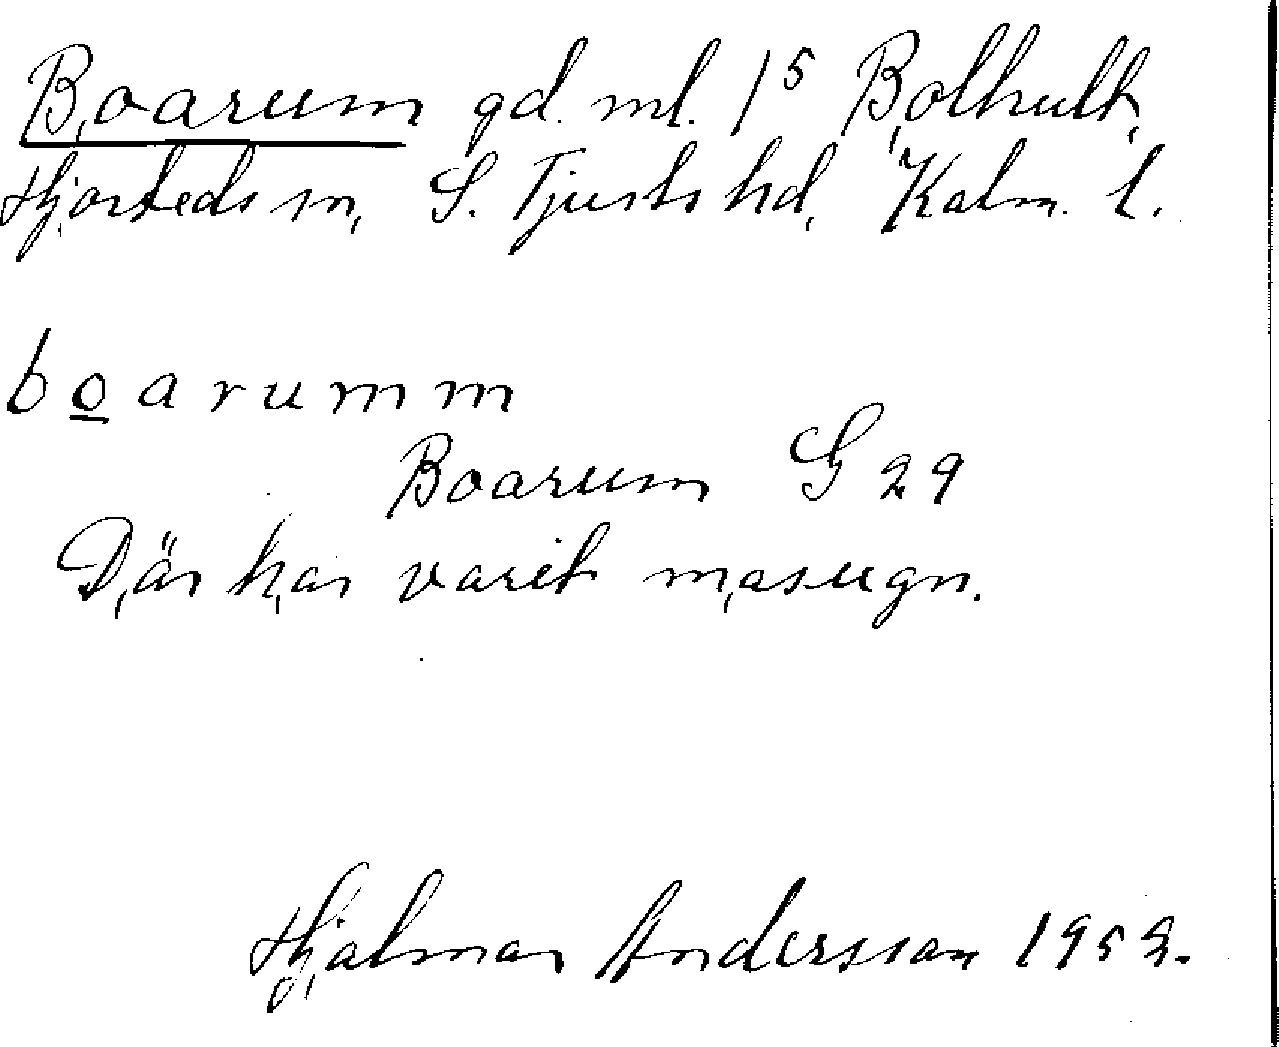 Boarum gd. ml. 1⁵ Bolhult,
Hjorteds sn, S. Tjusts hd, Kalm. l.
boarumm
Boarum G 29
Där har varit masugn.
Hjalmar Andersson 1953.